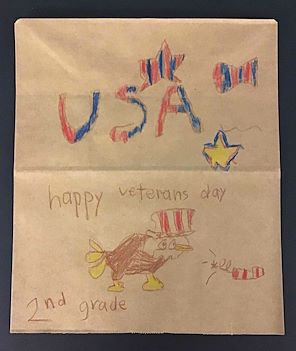 USA
happy veterans day
2nd grade